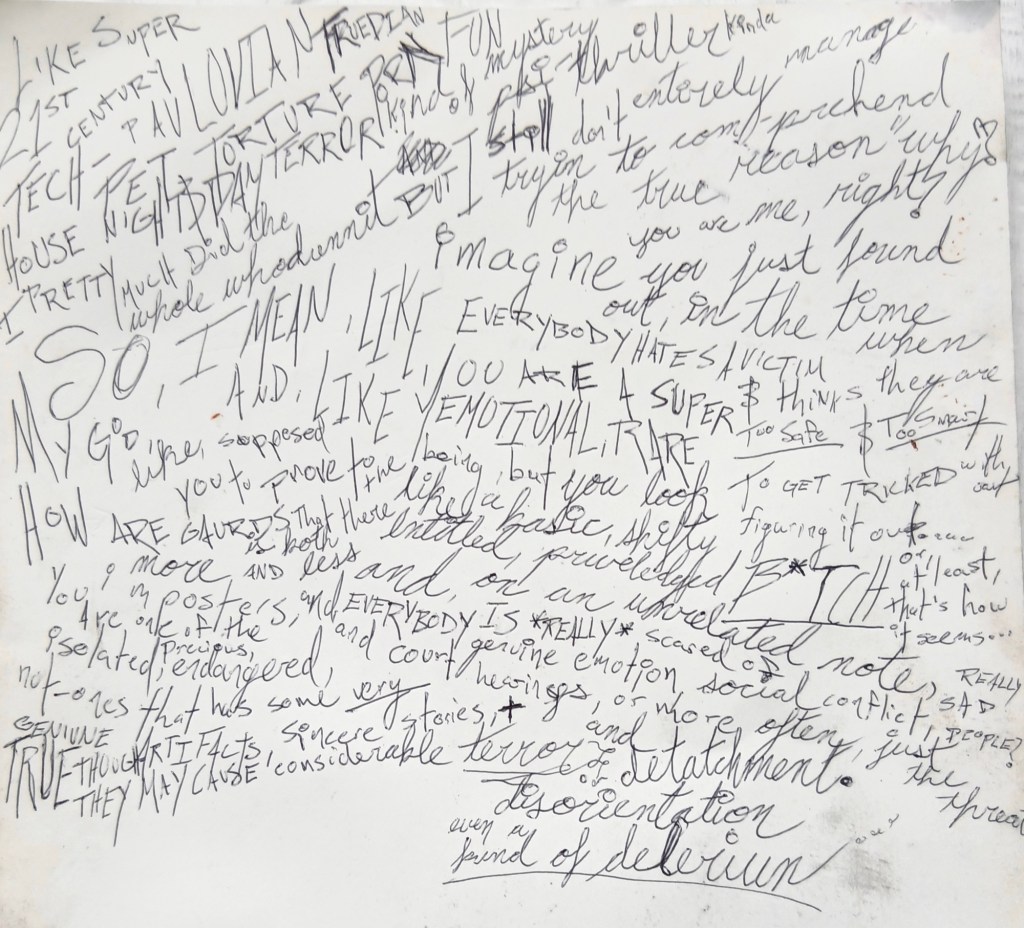 LIKE SUPER
21ST CENTURY PAVLOVIAN FRUEDIAN FUN
TECH- PET TORTURE kind of mystery
HOUSE NIGHT & DAY TERROR psi-thriller kinda
I PRETTY MUCH Did the whole whodunnit BUT I still don't entirely manage
tryin to com-prehend
the true reason "why?
you are me, right?
SO, I MEAN, LIKE, imagine you just found
out, in the time when
MY GOD, AND, LIKE, EVERYBODY HATES A VICTIM
& thinks they are
Too Safe & Too Smart
TO GET TRICKED without
figuring it out
or at least,
that's how
it seems...
like, supposed LIKE YOU ARE A SUPER
EMOTIONAL, RARE
being, but you look
like a basic, shifty
entitled, priveledged B*TCH
and, on an unrelated note, REALLY SAD PEOPLE?
HOW ARE you to prove to the
GAURDS that there
is both more AND less
You, imposters, and EVERYBODY IS *REALLY* scared of
Are one of the
isolated, precious, and genuine emotion, social conflict,
endangered, court hearings, or more often, just the threat
not-ones that has some very
GENIUNE stories, + and
TRUE ARTIFACTS, sincere
THOUGH THEY MAY CAUSE considerable terror & or detatchment.
disorientation
even a
kind of delerium